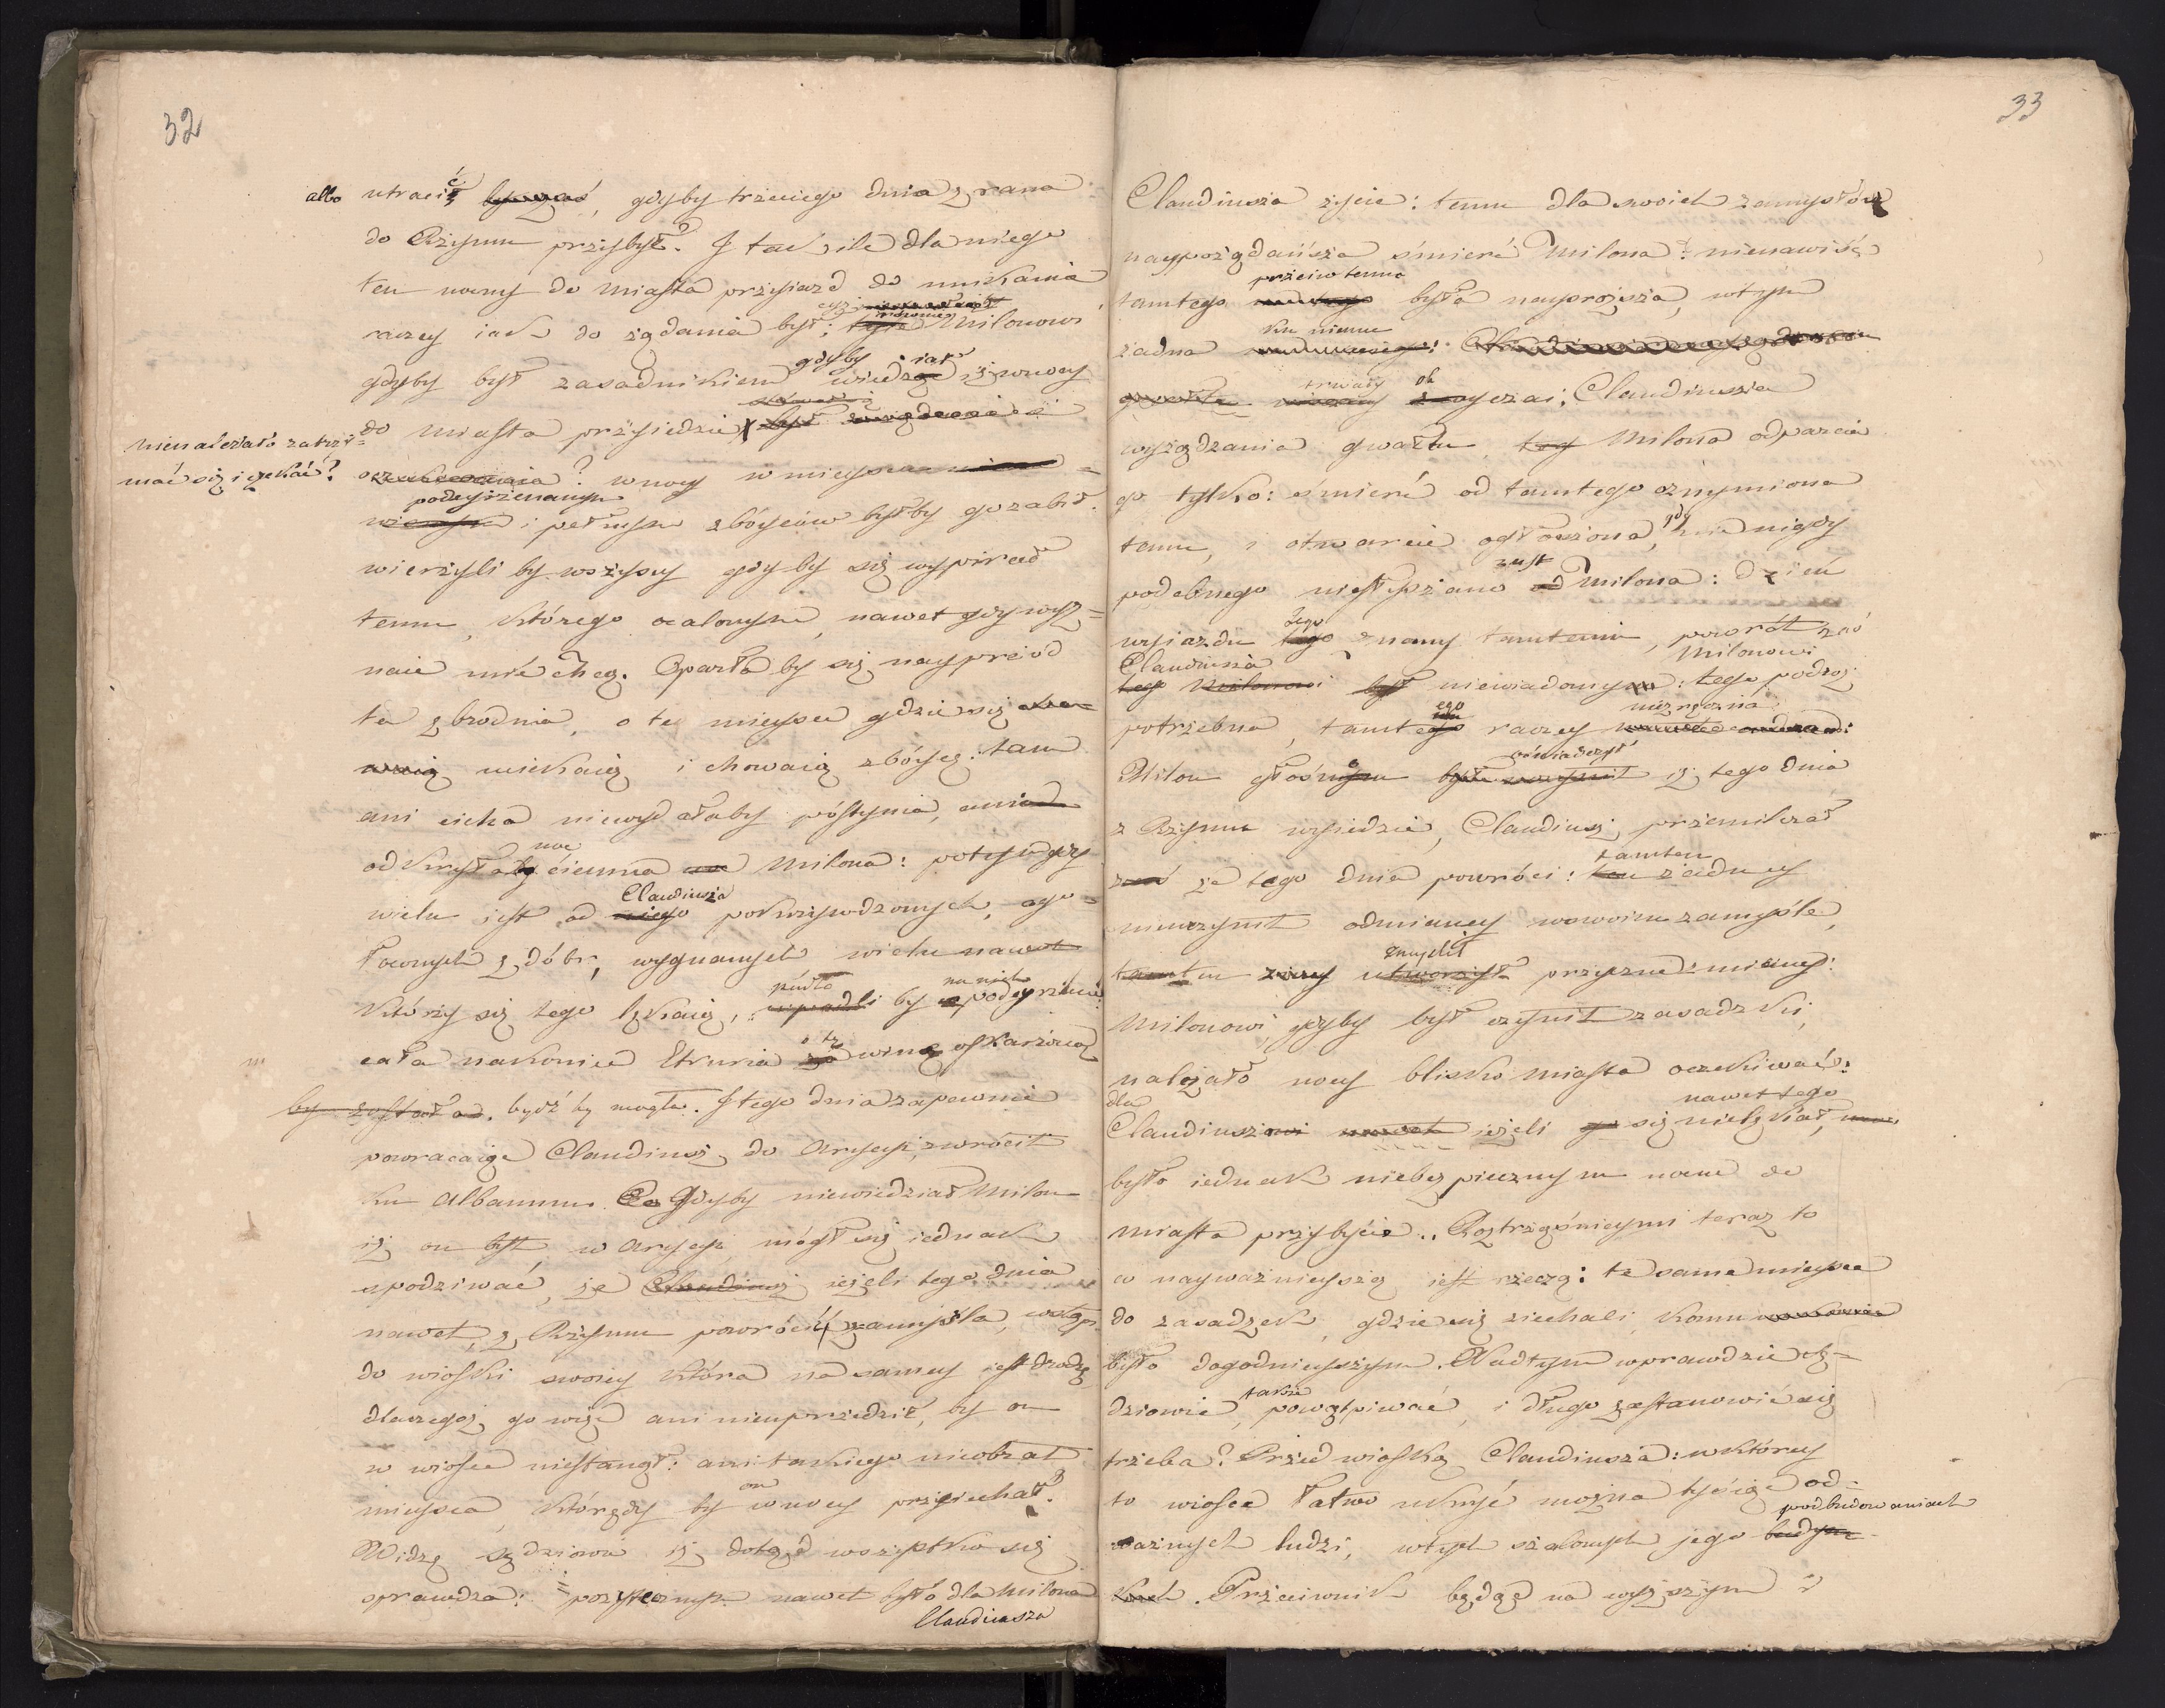 32
albo utracić, gdyby trzeciego dnia z rana
do Rzymu przybył? I tak ile dla niego
ten nocny do miasta przyiazd do unikania
raczey iak do żądania był; czyż Milonowi
gdyby był zasadnikiem gdyby iak wiedział iż w nocy
do miasta przyiedzie
nienależało zatrzy=
mać się i czekać?
oczekiwania? w nocy w mieyscu
podeyrzenanym i pełnym zbóyców byłby go zabił.
wierzyliby wszyscy gdyby się wypierał
temu, którego ocalonym, nawet gdy wyz=
naie mieć chcą. Oparłaby się nayprzód
ta zbrodnia, o te mieysce gdzie się
unikaią i chowaią zbóycy: tam
ani cicha niewydałaby póstynia, ani
odkryłaby noc ciemna Milona: potym gdy
wielu iest od Claudiusza pokrzywdzonych, ogo=
łoconych z dóbr, wygnanych wielu nawet
którzy się tego lękaią, padło by na nich podeyrzenie:
cała nakoniec Etruria o tę winę oskarżoną
by została. bydź by mogła. I tego dnia zapewnie
powracaiąc Claudiusz do Arycyi, zwrócił
ku Albanum. Gdyby niewiedział Milon
iż on był w Arycyi mógł się iednak
spodziwać, że Claudiusz ieżeli tego dnia
nawet z Rzymu powrócić zamyśla, wstąpi
do wioski swoiey która na samey iest drodze
dlaczegoż go więc ani nieuprzedził, by on
w wiosce niestanął: ani takiego nieobrał
mieysca, którędy by on w nocy przyiechał?
Widzę sędziowie iż dotąd wszystko się
sprawdza: pożytecznym nawet było dla Milona
Claudiusza
33
Claudiusza życie: temu dla swoich zamysłów
naypożądańsza śmierć Milona: nienawiść
tamtego przeciw temu była naysroższa, w tym
żadna ku niemu:
trwały obyczai; Claudiusza
wyrządzania gwałtu, Milona odparcia
go tylko: śmierć od tamtego oznaymiona
temu, i otwarcie ogłoszona, gdy nigdy
podobnego niesłyszano z ust Milona: dzień
wyiazdu tego znany tamtemu, powrót zaś
Claudiusza Milonowi niewiadomy: tego podróż
potrzebna, tamtego raczey niezręczna:
Milon głośno oświadczył iż tego dnia
z Rzymu wyiedzie, Claudiusz, przemilczał
że tego dnia powróci: tamten żadney
nieuczynił odmieney w swoim zamyśle,
ten zmyślił przyczynę zmiany:
Milonowi, gdyby był czynił zasadzki,
należało nocy blisko miasta oczekiwać:
dla Claudiusza ieżeli się nawet tego nielękał,
było iednak niebezpiecznym nocne do
miasta przybycie.. Rostrzygóniymi teraz to
co nayważnieyszą iest rzeczą: te same mieysce
do zasadzek, gdzie się ziechali, komu
było dogodnieyszym. Nad tym wprawdzie sę=
dziowie, także powątpiwać, i długo zastanowić się
trzeba? Przed wioską Claudiusza: w którey
to wiosce łatwo ukryć można tysiąc od=
ważnych ludzi, w tych szalonych jego podbudowaniach
Przeciwnik będąc na wyższym i